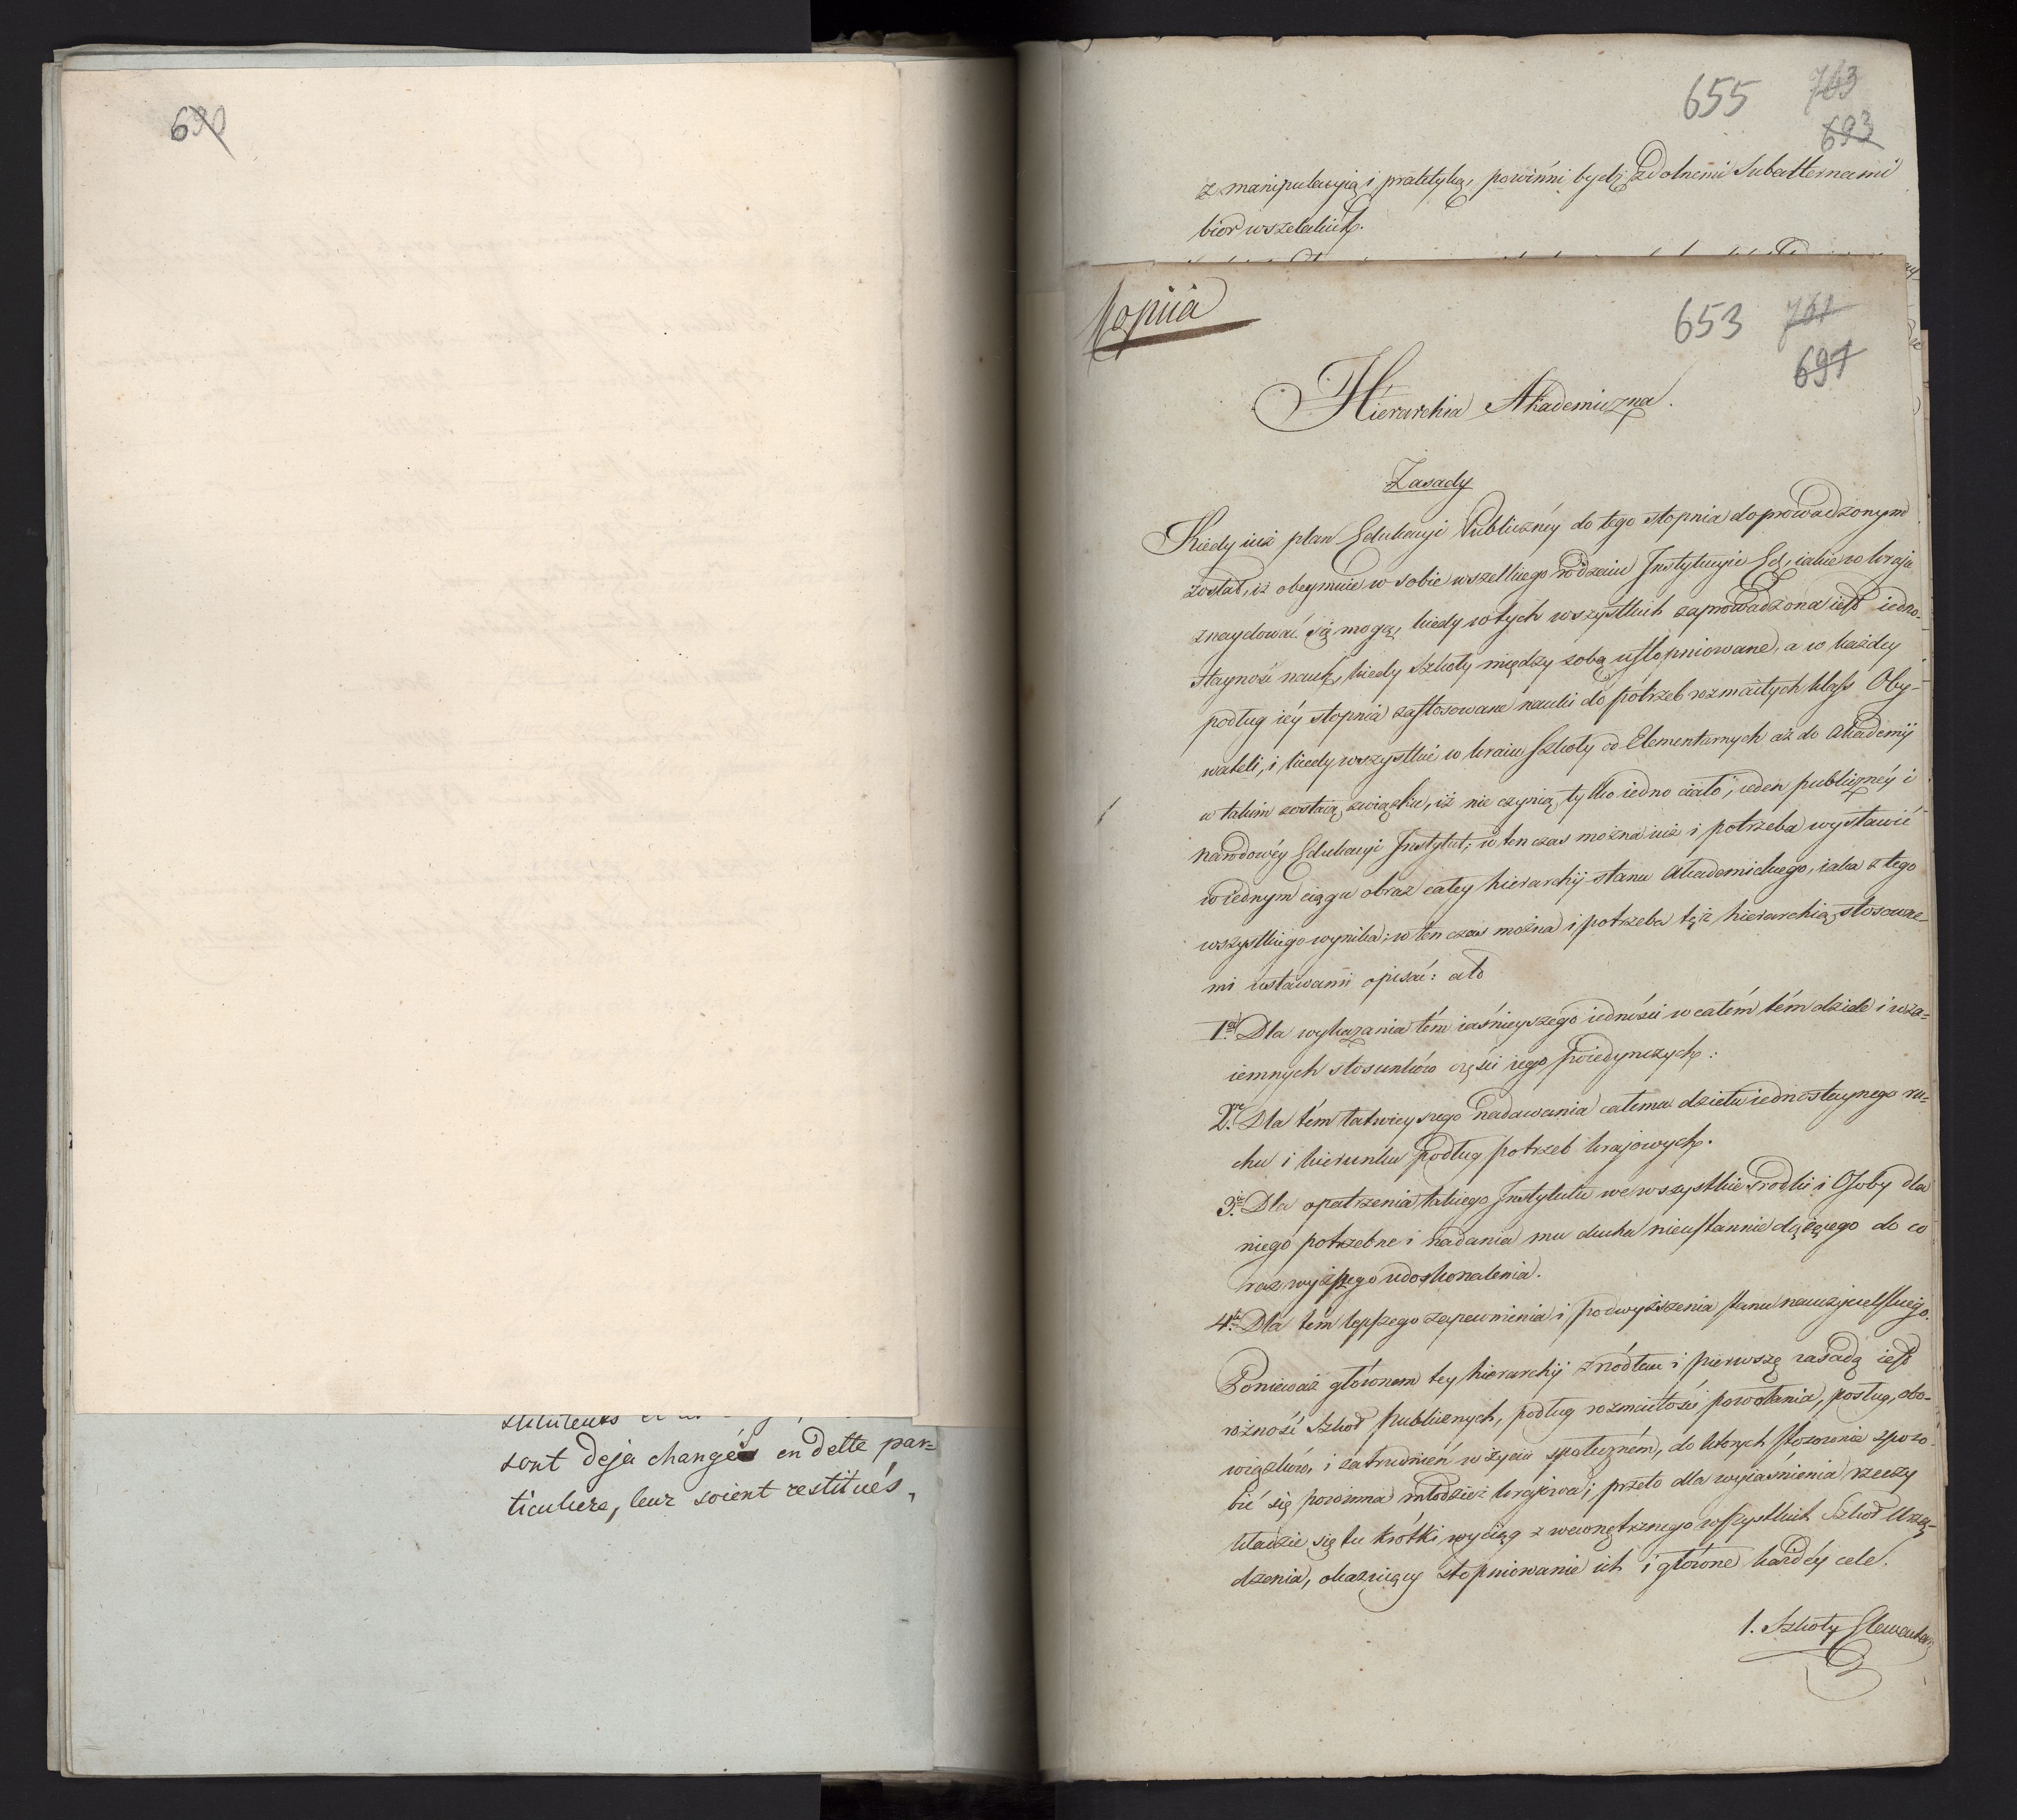 690
stituteurs et
sont deja changés en dette par=
ticuliere, leur soient restitués,
655 703
693
z manipulacyią i praktyką, powinni bydź zdolnemi Subalternami
biór wszelakich.
Kopiia
653 701
691
Hierarchia Akademiczna.
Zasady
Kiedy iuż plan Edukacyi Publiczney do tego stopnia doprowadzonym
został, iż obeymuie w sobie wszelkiego rodzaiu Instytucyie Ed, iakie w kraju
znaydować się mogą, kiedy w tych wszystkich zaprowadzona iest iedno-
stayność nauk, kiedy Szkoły między sobą ustopniowane, a w każdey
podług iéy stopnia zastosowane nauki do potrzeb rozmaitych klass Oby-
wateli, i kiedy wszystkie w kraiu Szkoły od Elementarnych aż do Akademij
w takim zostaią związku, iż nie czynią tylko iedno ciało, ieden publiczney i
narodowéy Edukacyi Instytut; w ten czas można iuż i potrzeba wystawić
w iednym ciągu obraz całey hierarchij stanu Akademickiego, iaka z tego
wszystkiego wynika; w ten czas można i potrzeba też hierarchią stosowne-
mi ustawami opisać: a to
1.o Dla wykazania tém iaśnieyszego iedności w całém tém dziele i wza-
iemnych stosunków części iego poiedynczych:
2.re Dla tém łatwieyszego nadawania całemu dziełu iednostaynego ru-
chu i kierunku podług potrzeb krajowych.
3.ie Dla opatrzenia takiego Instytutu we wszystkie srodki i Osoby dla
niego potrzebne i nadania mu ducha nieustannie dążącego do co
raz wyższego udoskonalenia.
4.te Dla tém lepszego zapewnienia i podwyższenia stanu nauczycielskiego.
Ponieważ głównem tey hierarchij źródłem i pierwszą zasadą iest
różność Szkół publicznych, podług rozmaitości powołania, posług, obo-
wiązków, i zatrudnień w życiu społeczném, do których stosownie sposo-
bić się powinna młodzież krajowa; przeto dla wyiaśnienia rzeczy
kładzie się tu krótki wyciąg z wewnętrznego wszystkich Szkół Urzą-
dzenia, okazuiący stopniowanie ich i główne każdéy cele.
1. Szkoły Elementar